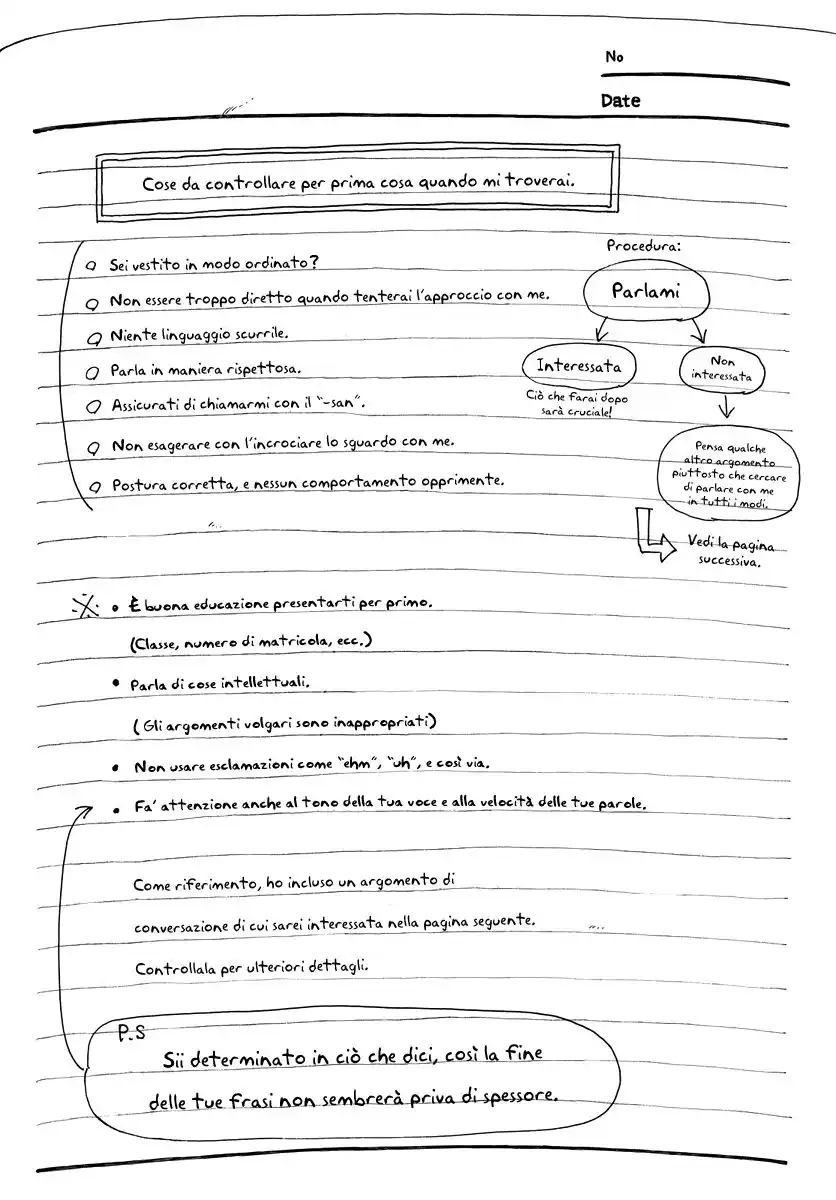 No
Date
Cose da controllare per prima cosa quando mi troverai.
Sei vestito in modo ordinato?
Non essere troppo diretto quando tenterai l'approccio con me.
Niente linguaggio scurrile.
Parla in maniera rispettosa.
Assicurati di chiamarmi con il "-san".
Non esagerare con l'incrociare lo sguardo con me.
Postura corretta, e nessun comportamento opprimente.
Procedura:
Parlami
Interessata
Ciò che farai dopo
sarà cruciale!
Non
interessata
Pensa qualche
altro argomento
piuttosto che cercare
di parlare con me
in tutti i modi.
Vedi la pagina
successiva.
• È buona educazione presentarti per primo.
(Classe, numero di matricola, ecc.)
• Parla di cose intellettuali.
(Gli argomenti volgari sono inappropriati)
• Non usare esclamazioni come "ehm", "uh", e così via.
• Fa' attenzione anche al tono della tua voce e alla velocità delle tue parole.
Come riferimento, ho incluso un argomento di
conversazione di cui sarei interessata nella pagina seguente.
Controllala per ulteriori dettagli.
P.S
Sii determinato in ciò che dici, così la fine
delle tue frasi non sembrerà priva di spessore.